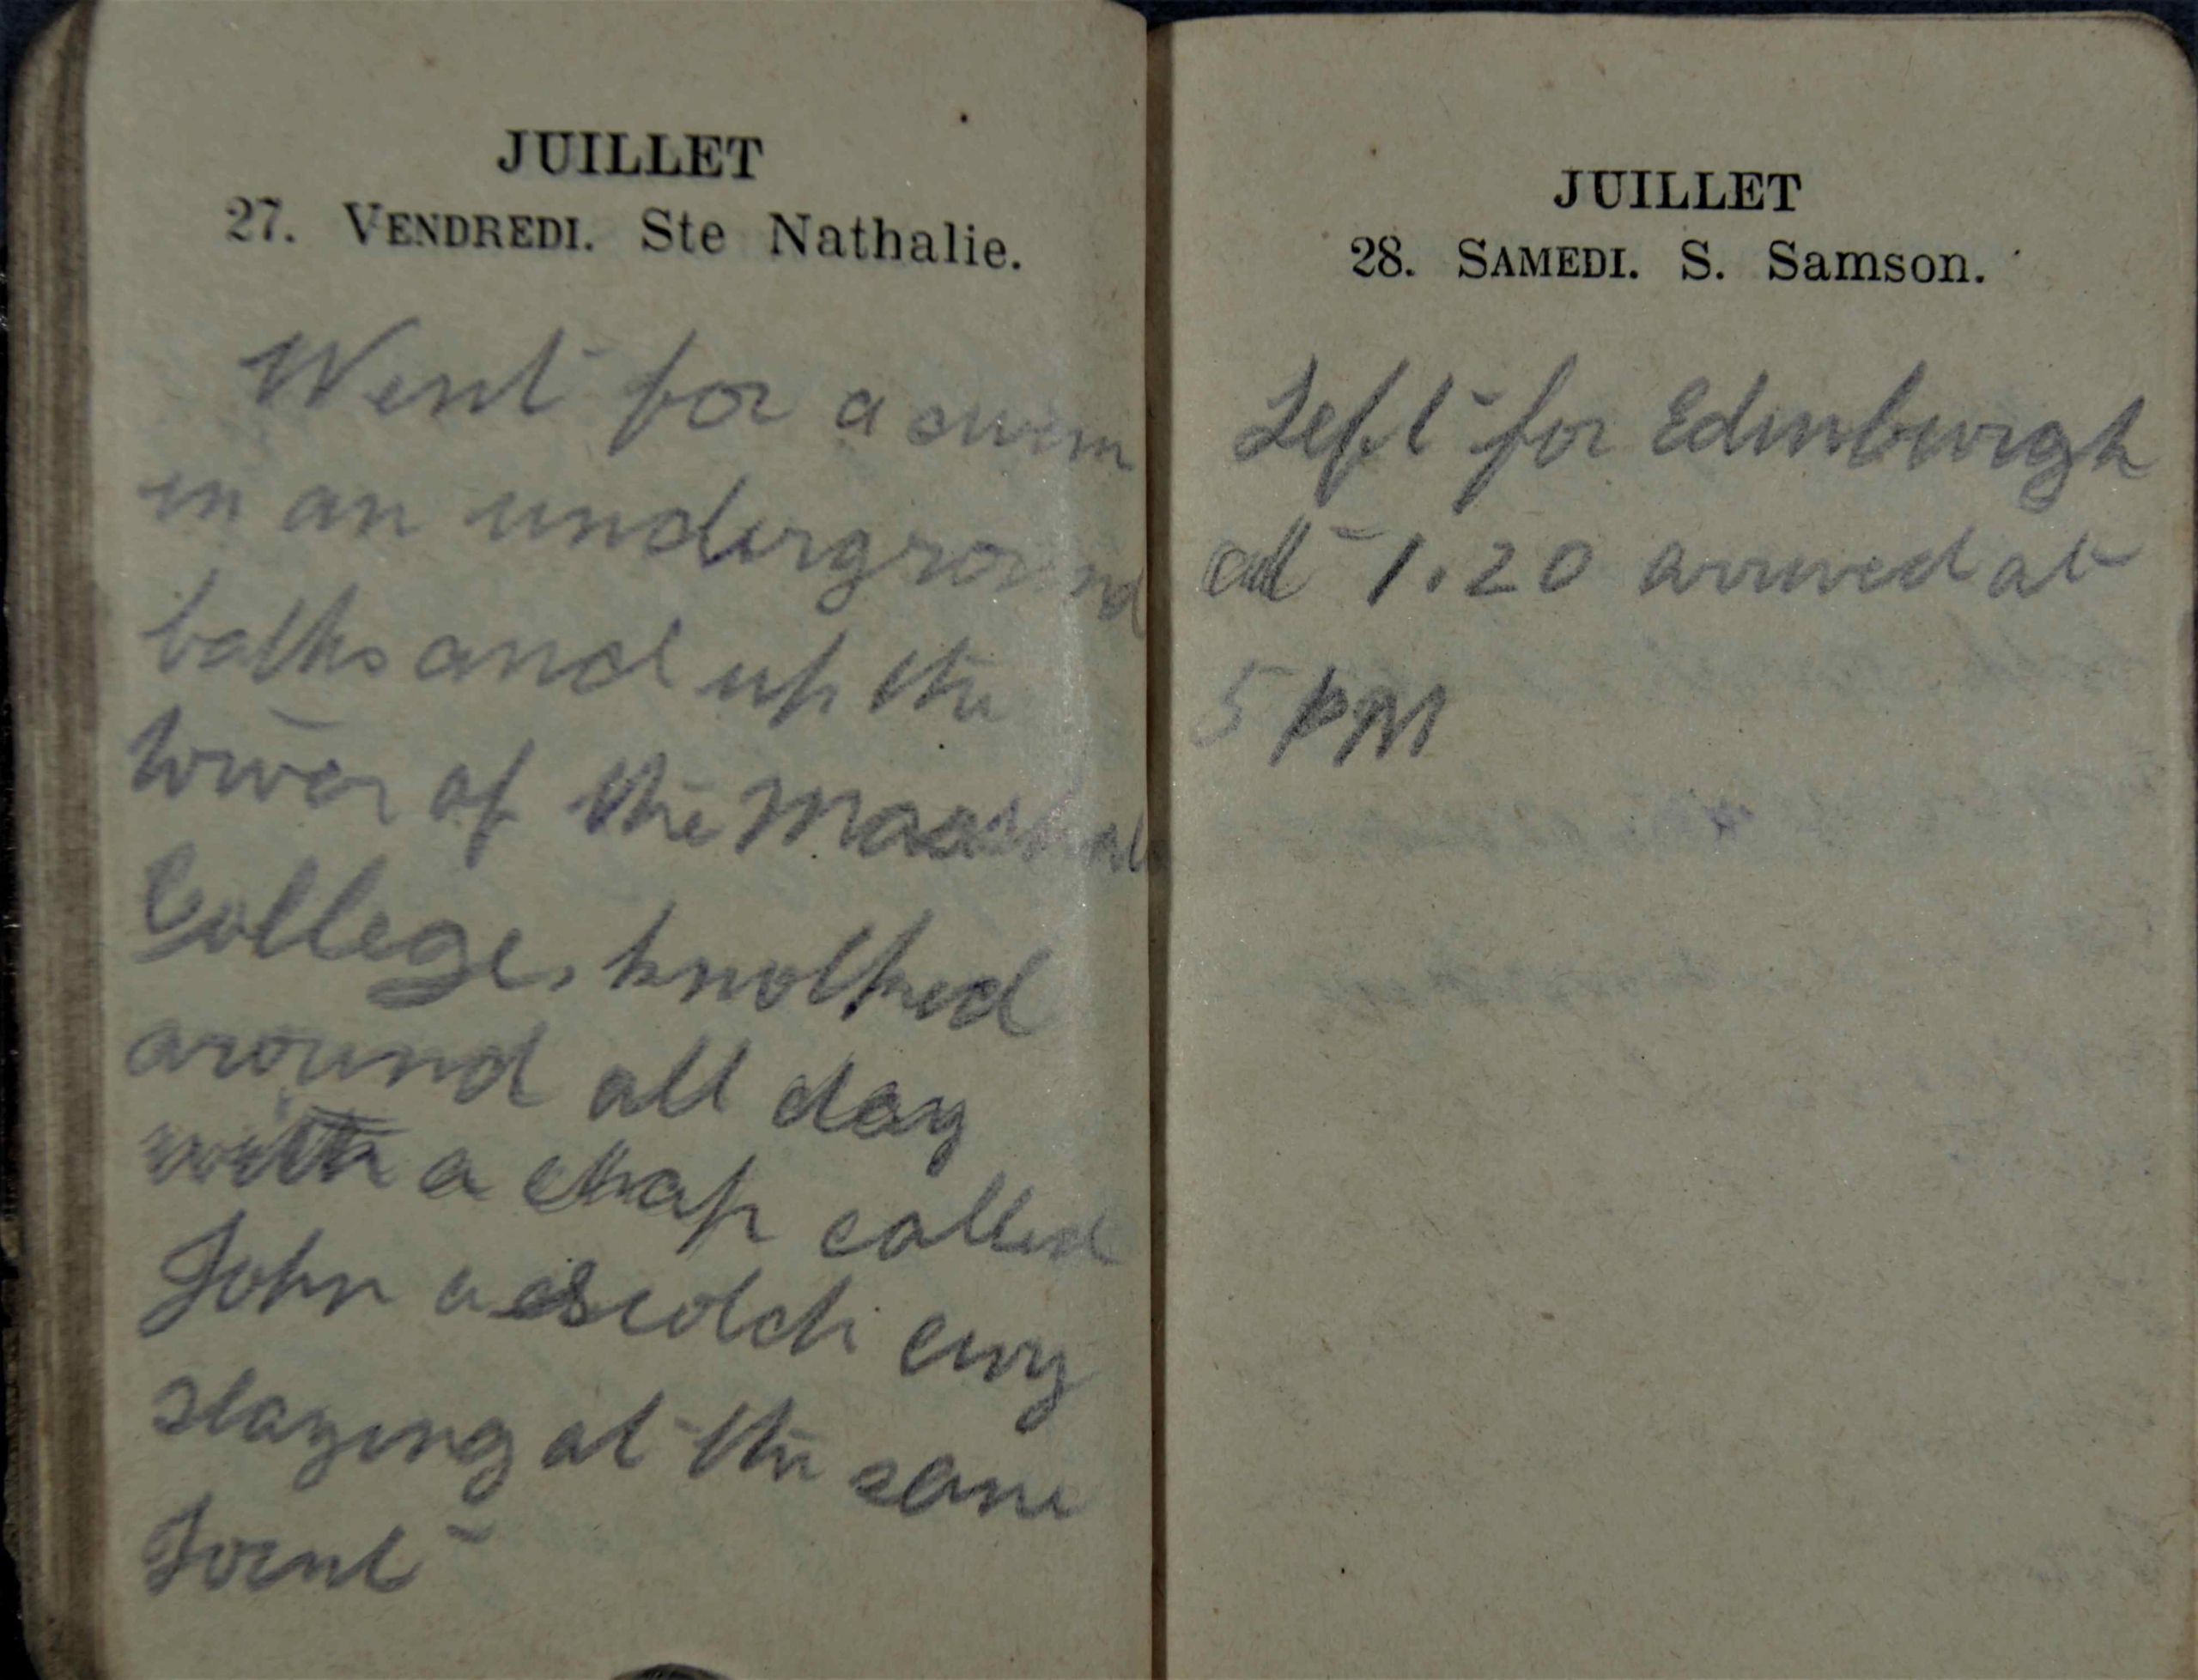 JUILLET
27. VENDREDI. Ste Nathalie.
Went for a swim
in an underground
baths and up the
tower of the
College, knocked
around all day
with a chap called
John a scotch
staying at the same
Joint
JUILLET
28. SAMEDI. S. Samson.
Left for Edinburgh
at 1.20 arrived at
5 PM